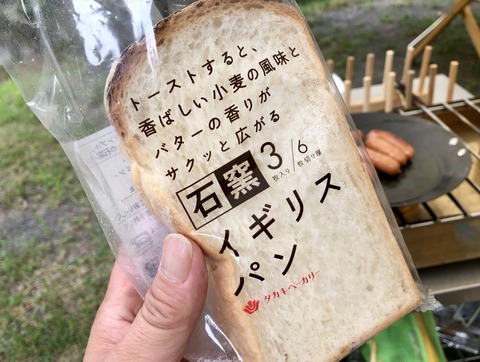 トーストすると、
香ばしい小麦の風味と
バターの香りが
サクッと広がる
石窯 3枚入り/6枚切り厚
イギリス
パン
タカキベーカリー